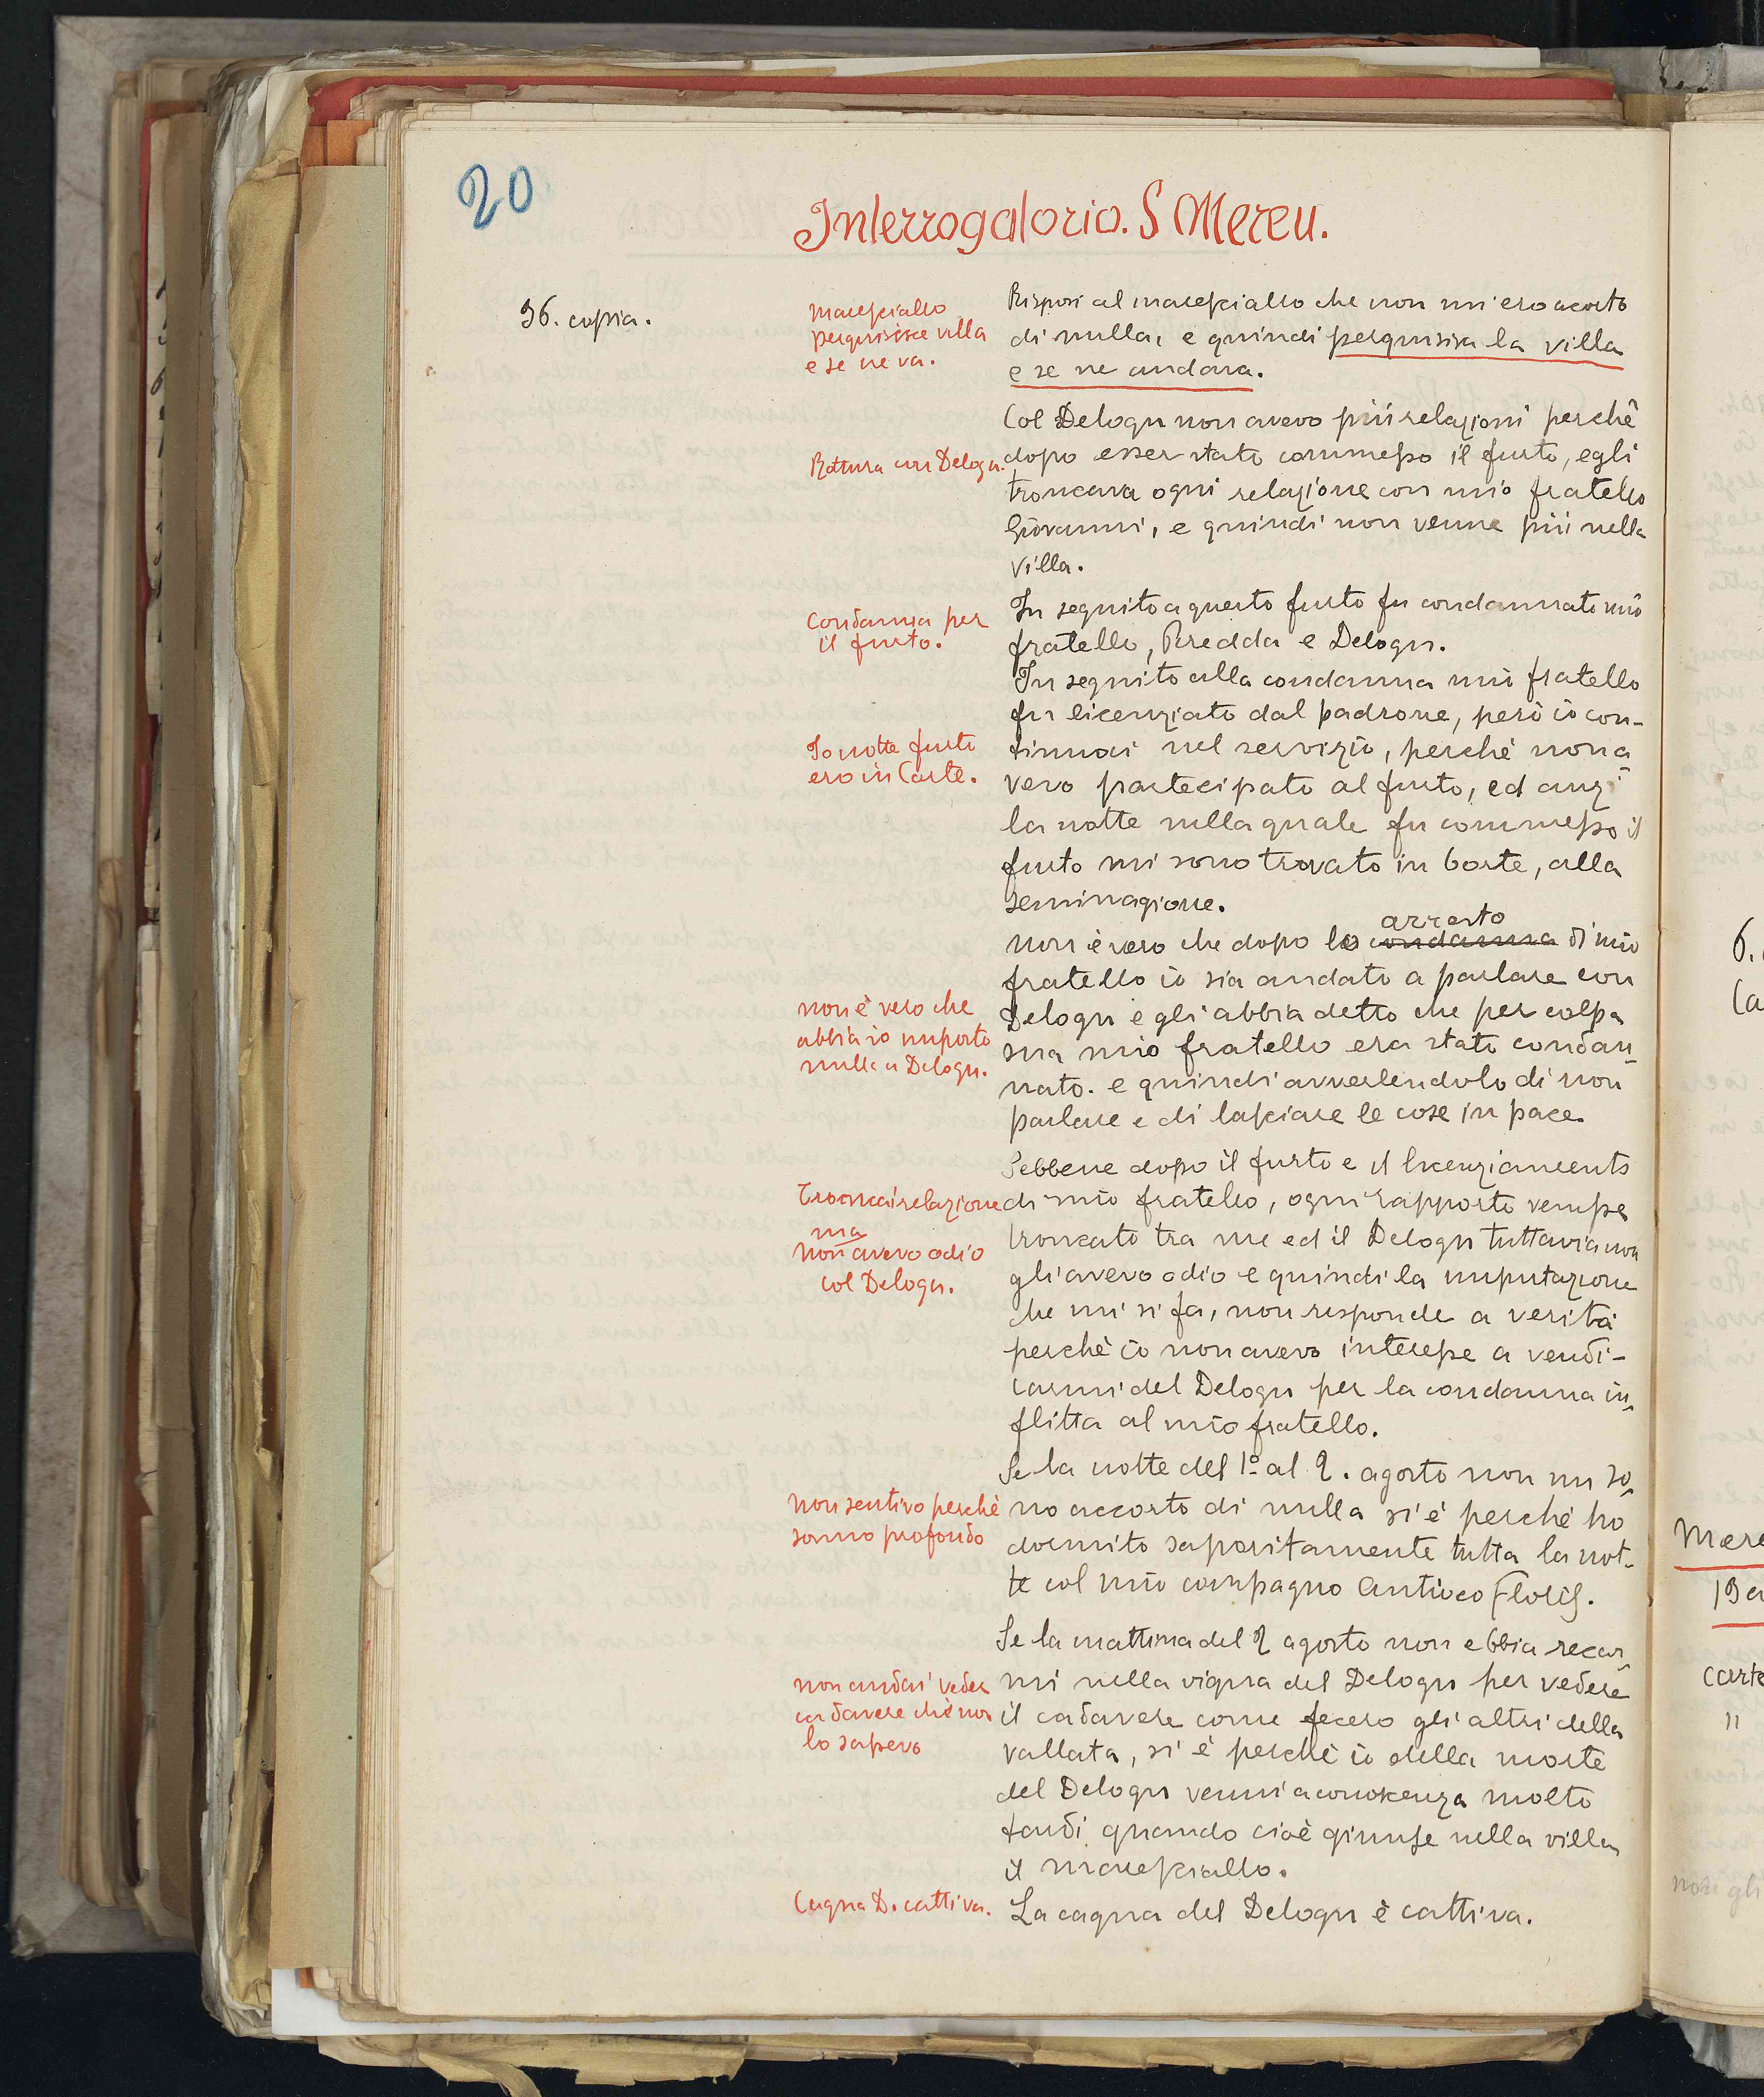 20
Interrogatorio. S Mereu.
36. copia.
Maresciallo
perquisisce villa
e se ne va.
Risposi al maresciallo che non mi ero acorto
di nulla, e quindi perquisiva la villa
e se ne andava.
Rottura con Delogu.
Col Delogu non avevo più relazioni perchè
dopo esser stato commesso il furto, egli
troncava ogni relazione con mio fratello
Giovanni, e quindi non venne più nella
villa.
Condanna per
il furto.
In seguito a questo furto fu condannato mio
fratello, Piredda e Delogu.
In seguito alla condanna mio fratello
fu licenziato dal padrone, però io con-
Io notte furto
ero in Carte.
tinuai nel servizio, perchè non a
vevo partecipato al furto, ed anzi
la notte nella quale fu commesso il
furto mi sono trovato in Corte, alla
seminagione.
arresto
non è vero che dopo lo condanna di mio
fratello io sia andato a parlare con
non è vero che
abbia io imposto
nulla a Delogu.
Delogu e gli abbia detto che per colpa
sua mio fratello era stato condan-
nato. e quindi avvertendolo di non
parlare e di lasciare le cose in pace.
Sebbene dopo il furto e il licenziamento
Troncai relazione
ma
non avevo odio
col Delogu.
di mio fratello, ogni rapporto venisse
troncato tra me ed il Delogu tuttavia non
gli avevo odio e quindi la imputazione
che mi si fa, non risponde a verità
perchè io non avevo interesse a vendi-
carmi del Delogu per la condanna in-
flitta al mio fratello.
Se la notte del 1º al 2. agosto non mi so-
non sentivo perchè
sonno profondo
no accorto di nulla si è perchè ho
dormito saporitamente tutta la not-
te col mio compagno Antioco Floris.
Se la mattina del 2 agosto non ebbia recar-
non andai veder
cadavere chè non
lo sapevo
mi nella vigna del Delogu per vedere
il cadavere come fecero gli altri della
vallata, si è perchè io della morte
del Delogu venni a conoscenza molto
tardi quando cioè giunse nella villa
il maresciallo.
Cagna D. cattiva.
La cagna del Delogu è cattiva.
6.
Mere
carte
"
non gli